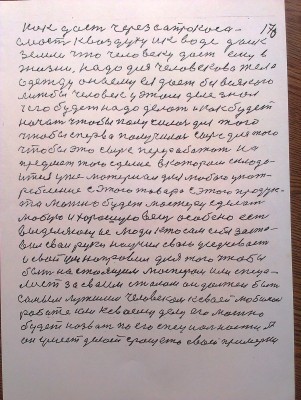 178
как даст через атрокоса-
мост к воздуху и к воде даже
земли что человеку даст ему в
жизни, надо для человекова тела
одежду он ему её дает бу всякого
чтобы человек у этом деле знал
чего будет надо делат и как будет
начат чтобы получился для того
чтобы сперва получился сыре для того
чтобы это сыре переработат на
предмет того сделие в котором находи-
ится уже материал для любого упот-
ребление с этого товара с этого продук-
та можно будет мастеру сделат
любую и хорошую вещ особено ест
выделяющие люди кто сам себя заста-
вил свои руки научил свои
и свой ум направил для того чтобы
быт настоящим мастером или специ-
лист за своим станом он должен быт
самым лутшим человеком к своей любимой
работе или к своему делу его можно
будет назват по его специалности Я
он умеет делат просто свой примерки